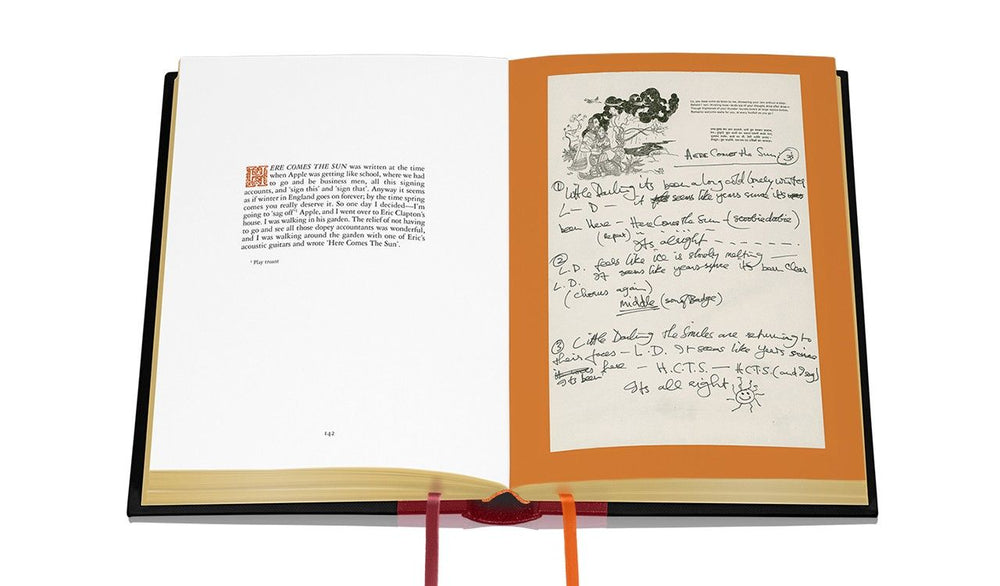 HERE COMES THE SUN was written at the time
when Apple was getting like school, where we had
to go and be business men, all this signing
accounts, and 'sign this' and 'sign that'. Anyway it seems
as if winter in England goes on forever; by the time spring
comes you really deserve it. So one day I decided—I'm
going to 'sag off'* Apple, and I went over to Eric Clapton's
house. I was walking in his garden. The relief of not having
to go and see all those dopey accountants was wonderful,
and I was walking around the garden with one of Eric's
acoustic guitars and wrote 'Here Comes The Sun'.
* Play truant
142
Here Comes the Sun
① Little Darling its been a long cold lonely winter
L — D — it seems like years since its
been Here — Here Comes the Sun - (scoobie doobie)
(repeat)
Its alright — — — — — —
② L.D. feels like ice is slowly melting ——
L.D. It seems like years since its been clear
(chorus again)
middle (song Badge)
③ Little Darling the Smiles are returning to
their faces — L.D. It seems like years since
Its been here — H.C.T.S. — H.C.T.S. (and I say)
Its all right